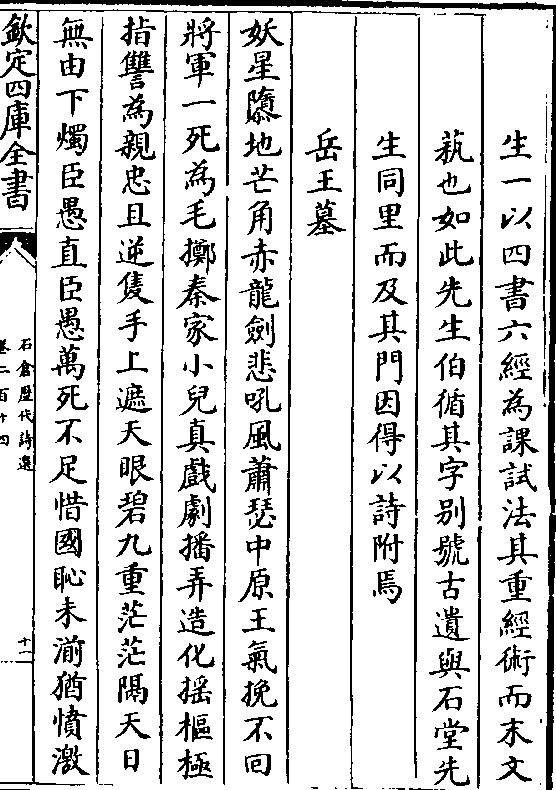 生一以四書六經為課試法其重經術而末文
蓺也如此先生伯循其字别號古遺與石堂先
生同里而及其門因得以詩附焉
岳王墓
妖星隳地芒角赤龍劍悲吼風蕭瑟中原王氣挽不回
將軍一死為毛擲秦家小兒真戲劇播弄造化揺樞極
指讐為親忠且逆隻手上遮天眼碧九重茫茫隔天日
無由下燭臣愚直臣愚萬死不足惜國恥未湔猶憤激
欽定四庫全書
石倉歴代詩選
卷二百十四
十二